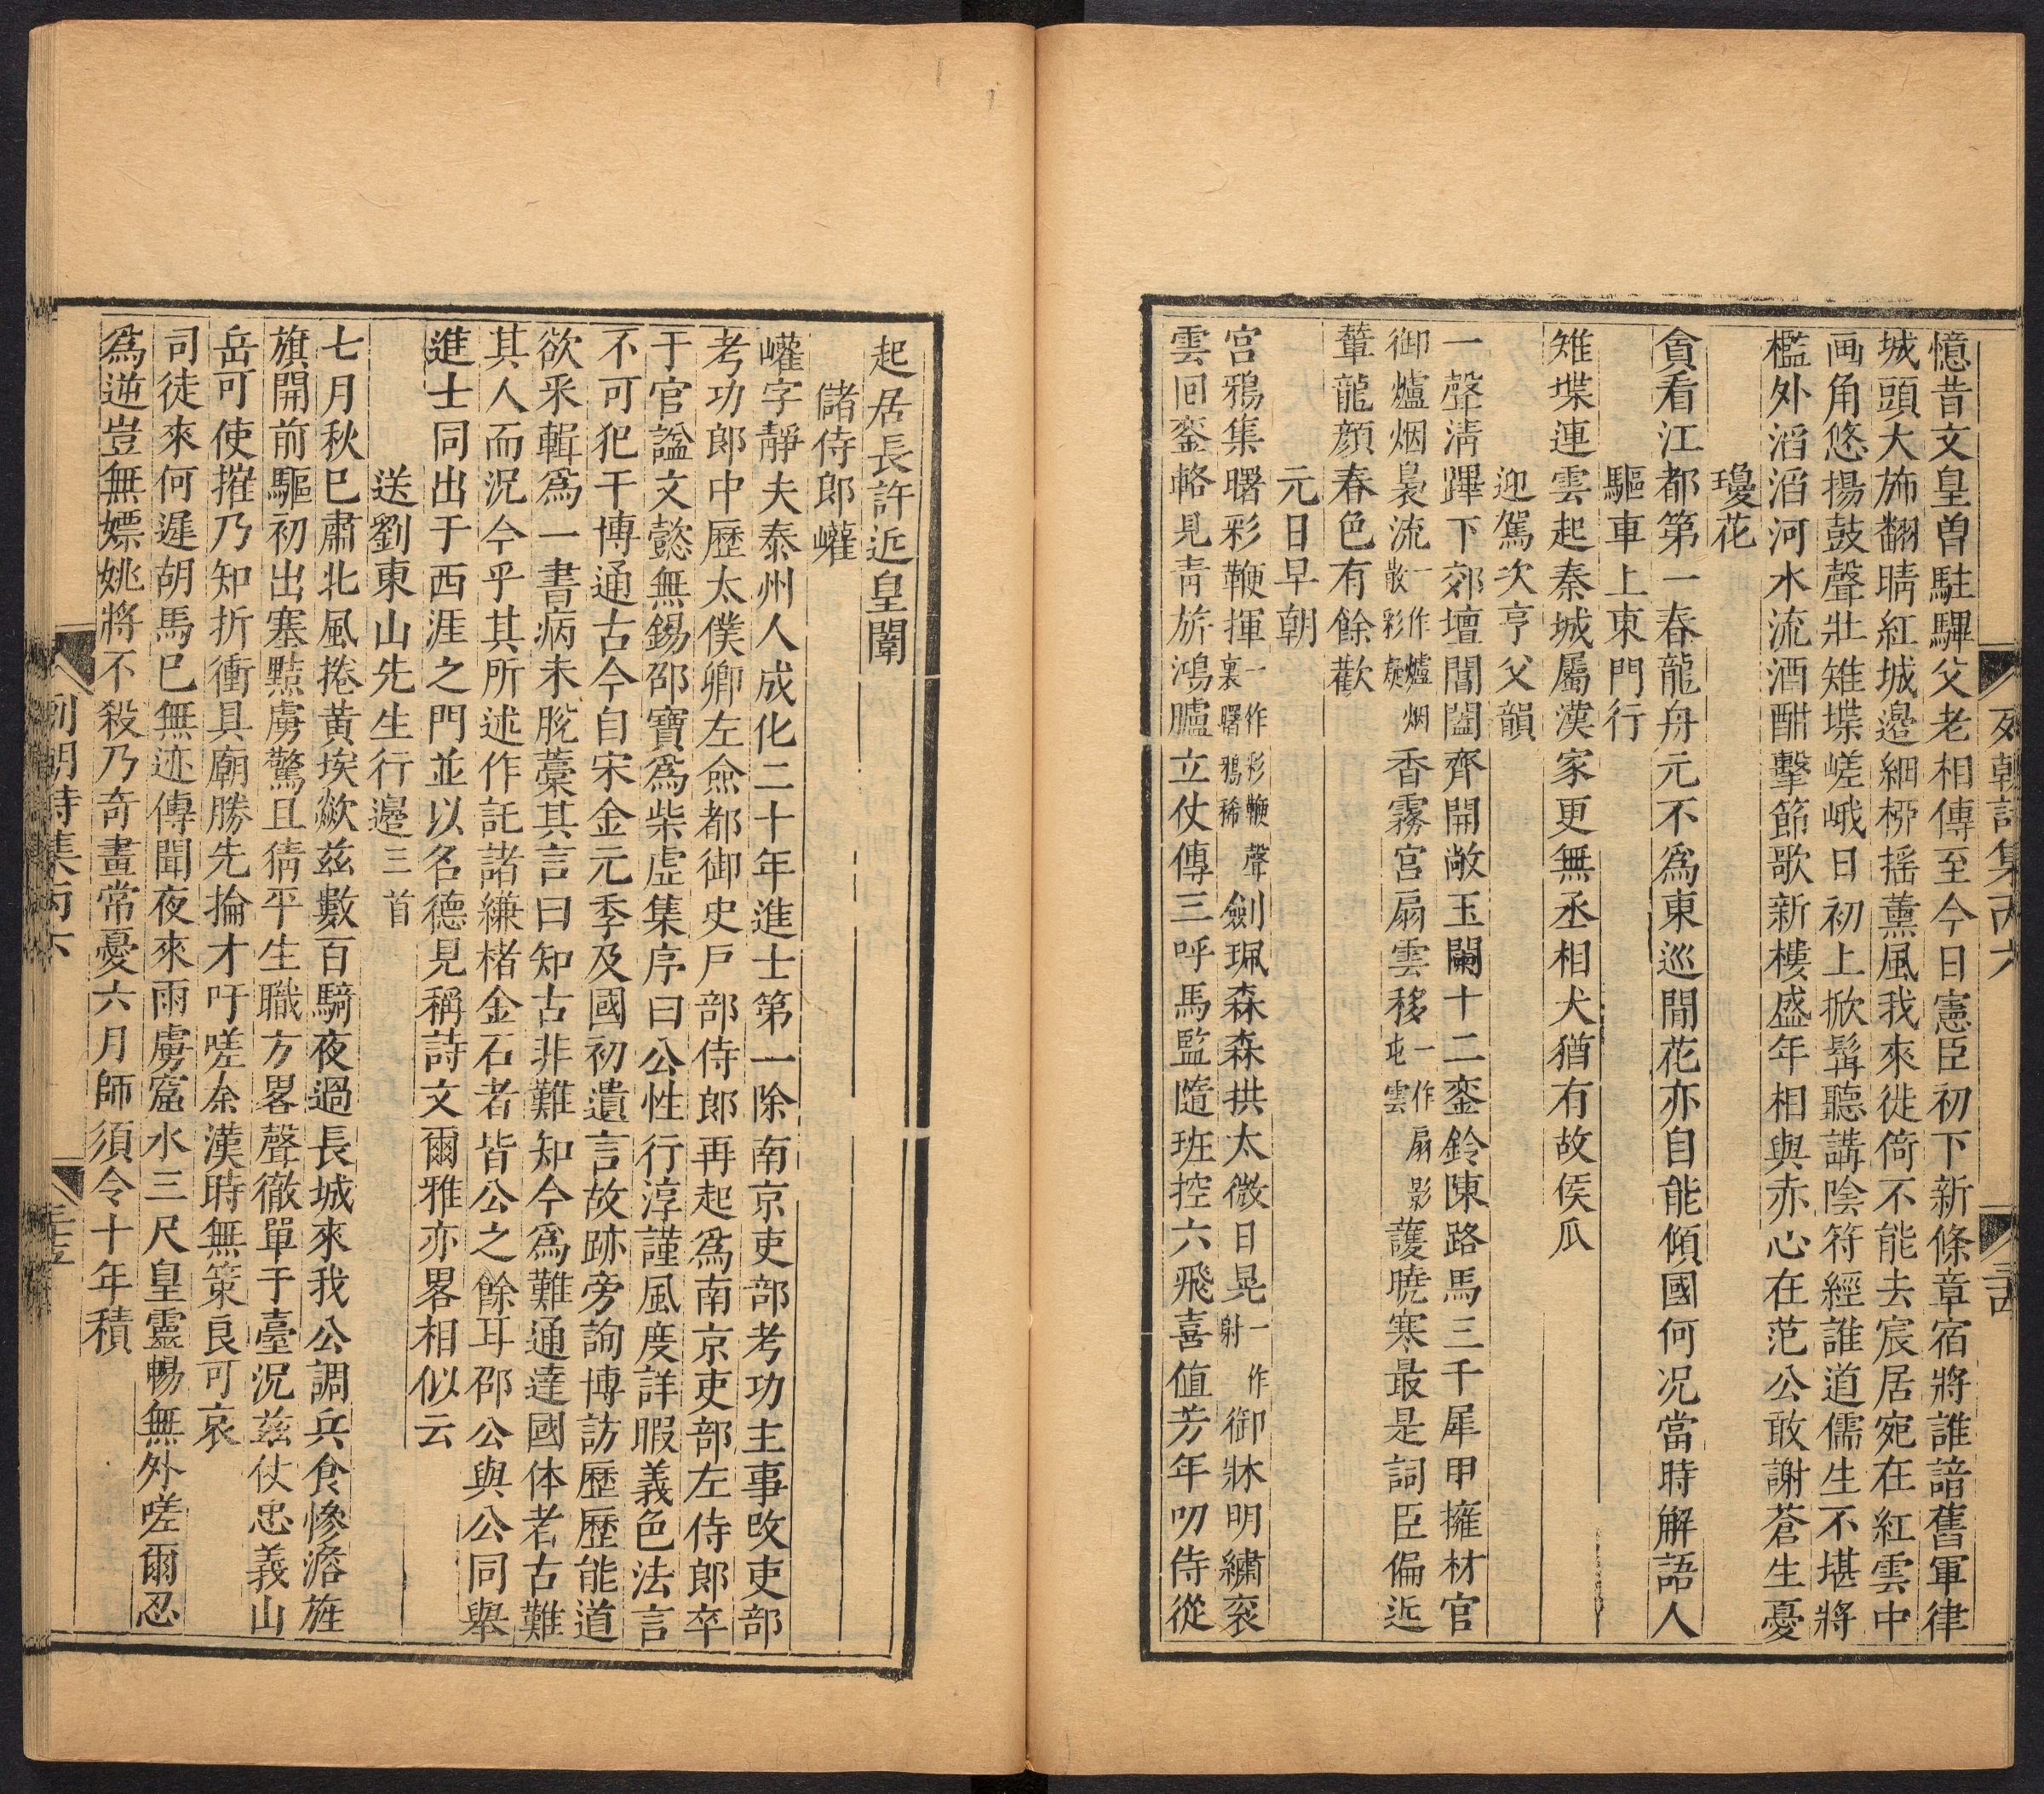 憶昔文皇曾駐驆父老相傳至今日憲臣初下新條章宿將誰諳舊軍律
城頭大斾翻晴紅城邉細栁摇薫風我來徙倚不能去宸居宛在紅雲中
画角悠揚鼓聲壯雉堞嵯峨日初上掀髯聽講陰符經誰道儒生不堪將
檻外滔滔河水流酒酣擊節歌新樓盛年相與赤心在范公敢謝蒼生憂
瓊花
貪看江都第一春龍舟元不爲東巡閒花亦自能傾國何况當時解語人
驅車上東門行
雉堞連雲起秦城屬漢家更無丞相犬猶有故侯瓜
迎駕次亨父韻
一聲淸蹕下郊壇閶闔齊開敞玉闌十二鸞鈴陳路馬三千犀甲擁材官
御爐烟裊流一作爐烟散彩凝香霧宫扇雲移一作扇影屯雲護曉寒最是詞臣偏近
輦龍顔春色有餘歡
元日早朝
宫鴉集曙彩鞭揮一作彩鞭聲裏曙鴉稀劍珮森森拱太微日晃一作射御牀明繡衮
雲回鑾輅見靑旂鴻臚立仗傳三呼馬監隨班控六飛喜値芳年叨侍從
列朝詩集丙六
三十四
起居長許近皇闈
儲侍郎巏
巏字靜夫泰州人成化二十年進士第一除南京吏部考功主事攺吏部
考功郎中歷太僕卿左僉都御史戸部侍郎再起爲南京吏部左侍郎卒
于官諡文懿無錫邵寶爲柴虚集序曰公性行淳謹風度詳暇義色法言
不可犯干博通古今自宋金元季及國初遺言故跡旁詢博訪歷歷能道
欲釆輯爲一書病未脫藁其言曰知古非難知今爲難通達國体者古難
其人而況今乎其所述作託諸縑楮金石者皆公之餘耳邵公與公同舉
進士同出于西涯之門並以名德見稱詩文爾雅亦畧相似云
送劉東山先生行邉三首
七月秋巳肅北風捲黄埃歘兹數百騎夜過長城來我公調兵食慘澹旌
旗開前驅初出塞黠虜驚且猜平生職方畧聲徹單于臺況兹仗忠義山
岳可使摧乃知折衝具廟勝先掄才吁嗟余漢時無策良可哀
司徒來何遲胡馬已無迹傳聞夜來雨虜窟水三尺皇靈暢無外嗟爾忍
爲逆豈無嫖姚將不殺乃奇畫常憂六月師須令十年積
列朝詩集丙六
三十五